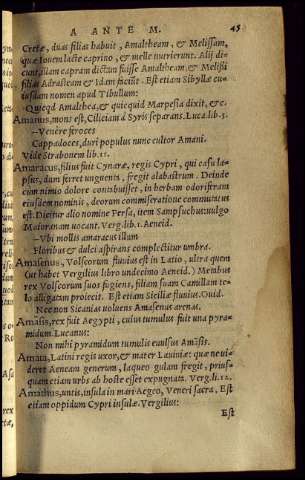 A ANTE M. 45
Cretæ, duas filias habuit, Amaltheam, & Melissam,
quæ Iovem lacte caprino, & melle nutrierunt. Alij di
cunt aliam capram dictam fuisse Amaltheam, & Melissi
filias Adrasteam & Idam faciũt. Est etiam Sibyllæ cu-
iusdam nomen apud Tibullum:
Quicqd Amalthea, & quicquid Marpesia dixit, &c.
Amanus, mons est, Ciliciam à Syris separans. Luca. lib. 3.
—Venêre feroces
Cappadoces, duri populus nunc cultor Amani.
Vide Strabonem lib. 12.
Amaracus, filius fuit Cynaræ, regis Cypri, qui casu la-
psus, dum ferret unguenti, fregit alabastrum. Deinde
cùm nimio dolore contabuisset, in herbam odoriferam
eiusdem nominis, deorum commiseratione commutatus
est. Dicitur alio nomine Persa, item Sampsuchus: uulgo
Maioranam uocant. Verg. lib. 1. Aeneid.
—Vbi mollis amaracus illum
Floribus & dulci aspirans complectitur umbra.
Amasenus, Volscorum fluuius est in Latio, ultra quem
(ut habet Vergilius libro undecimo Aeneid.) Metabus
rex Volscorum suos fugiens, filiam suam Camillam te-
lo alligatam proiecit. Est etiam Siciliæ fluuius. Ouid.
Nec non Sicanias uoluens Amasenus arenas.
Amasis, rex fuit Aegypti, cuius tumulus fuit una pyra-
midum. Lucanus:
Non mihi pyramidum tumulis euulsus Amasis.
Amata, Latini regis uxor, & mater Lauiniæ: quæ ne ui-
deret Aeneam generum, laqueo gulam fregit, prius-
quam etiam urbs ab hoste esset expugnata. Verg. li. 12.
Amathus, untis, insula in mari Aegeo, Veneri sacra. Est
etiam oppidum Cypri insulæ. Vergilius:
Est